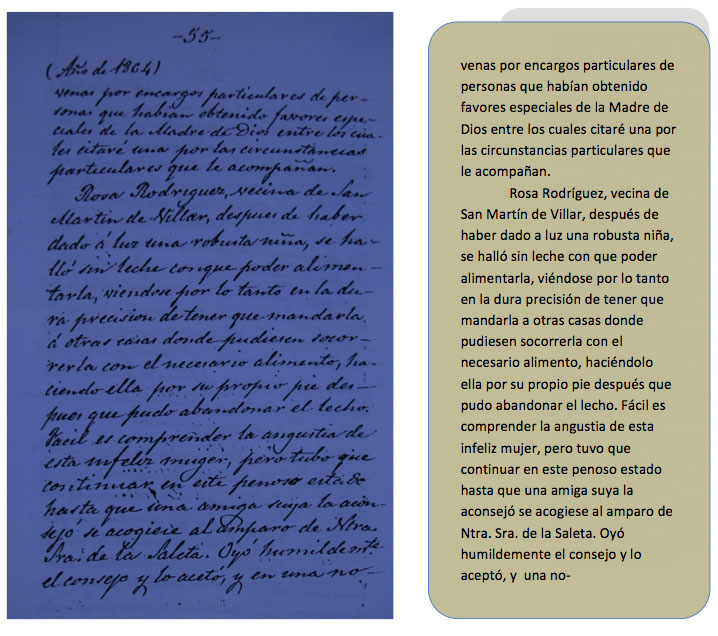 -55-
(Año de 1864)
venas por encargos particulares de per-
sonas que habian obtenido favores espe-
ciales de la Madre de Dios entre los cua-
les citaré una por las circunstancias
particulares que le acompañan.
Rosa Rodriguez, vecina de San
Martin de Villar, despues de haber
dado á luz una robusta niña, se ha-
lló sin leche conque poder alimen-
tarla, viendose por lo tanto en la du-
ra precision de tener que mandarla
á otras casas donde pudiesen socor-
rerla con el necesario alimento, ha-
ciendo ella por su propio pie des-
pues que pudo abandonar el lecho.
Facil es comprender la angustia de
esta infeliz muger, pero tubo que
continuar en este penoso estado
hasta que una amiga suya la acon-
sejó se acogiese al amparo de Ntra.
Sra. de la Saleta. Oyó humildemte.
el consejo y lo acetó, y en una no-
venas por encargos particulares de
personas que habían obtenido
favores especiales de la Madre de
Dios entre los cuales citaré una por
las circunstancias particulares que
le acompañan.
Rosa Rodríguez, vecina de
San Martín de Villar, después de
haber dado a luz una robusta niña,
se halló sin leche con que poder
alimentarla, viéndose por lo tanto
en la dura precisión de tener que
mandarla a otras casas donde
pudiesen socorrerla con el
necesario alimento, haciéndolo
ella por su propio pie después que
pudo abandonar el lecho. Fácil es
comprender la angustia de esta
infeliz mujer, pero tuvo que
continuar en este penoso estado
hasta que una amiga suya la
aconsejó se acogiese al amparo de
Ntra. Sra. de la Saleta. Oyó
humildemente el consejo y lo
aceptó, y una no-